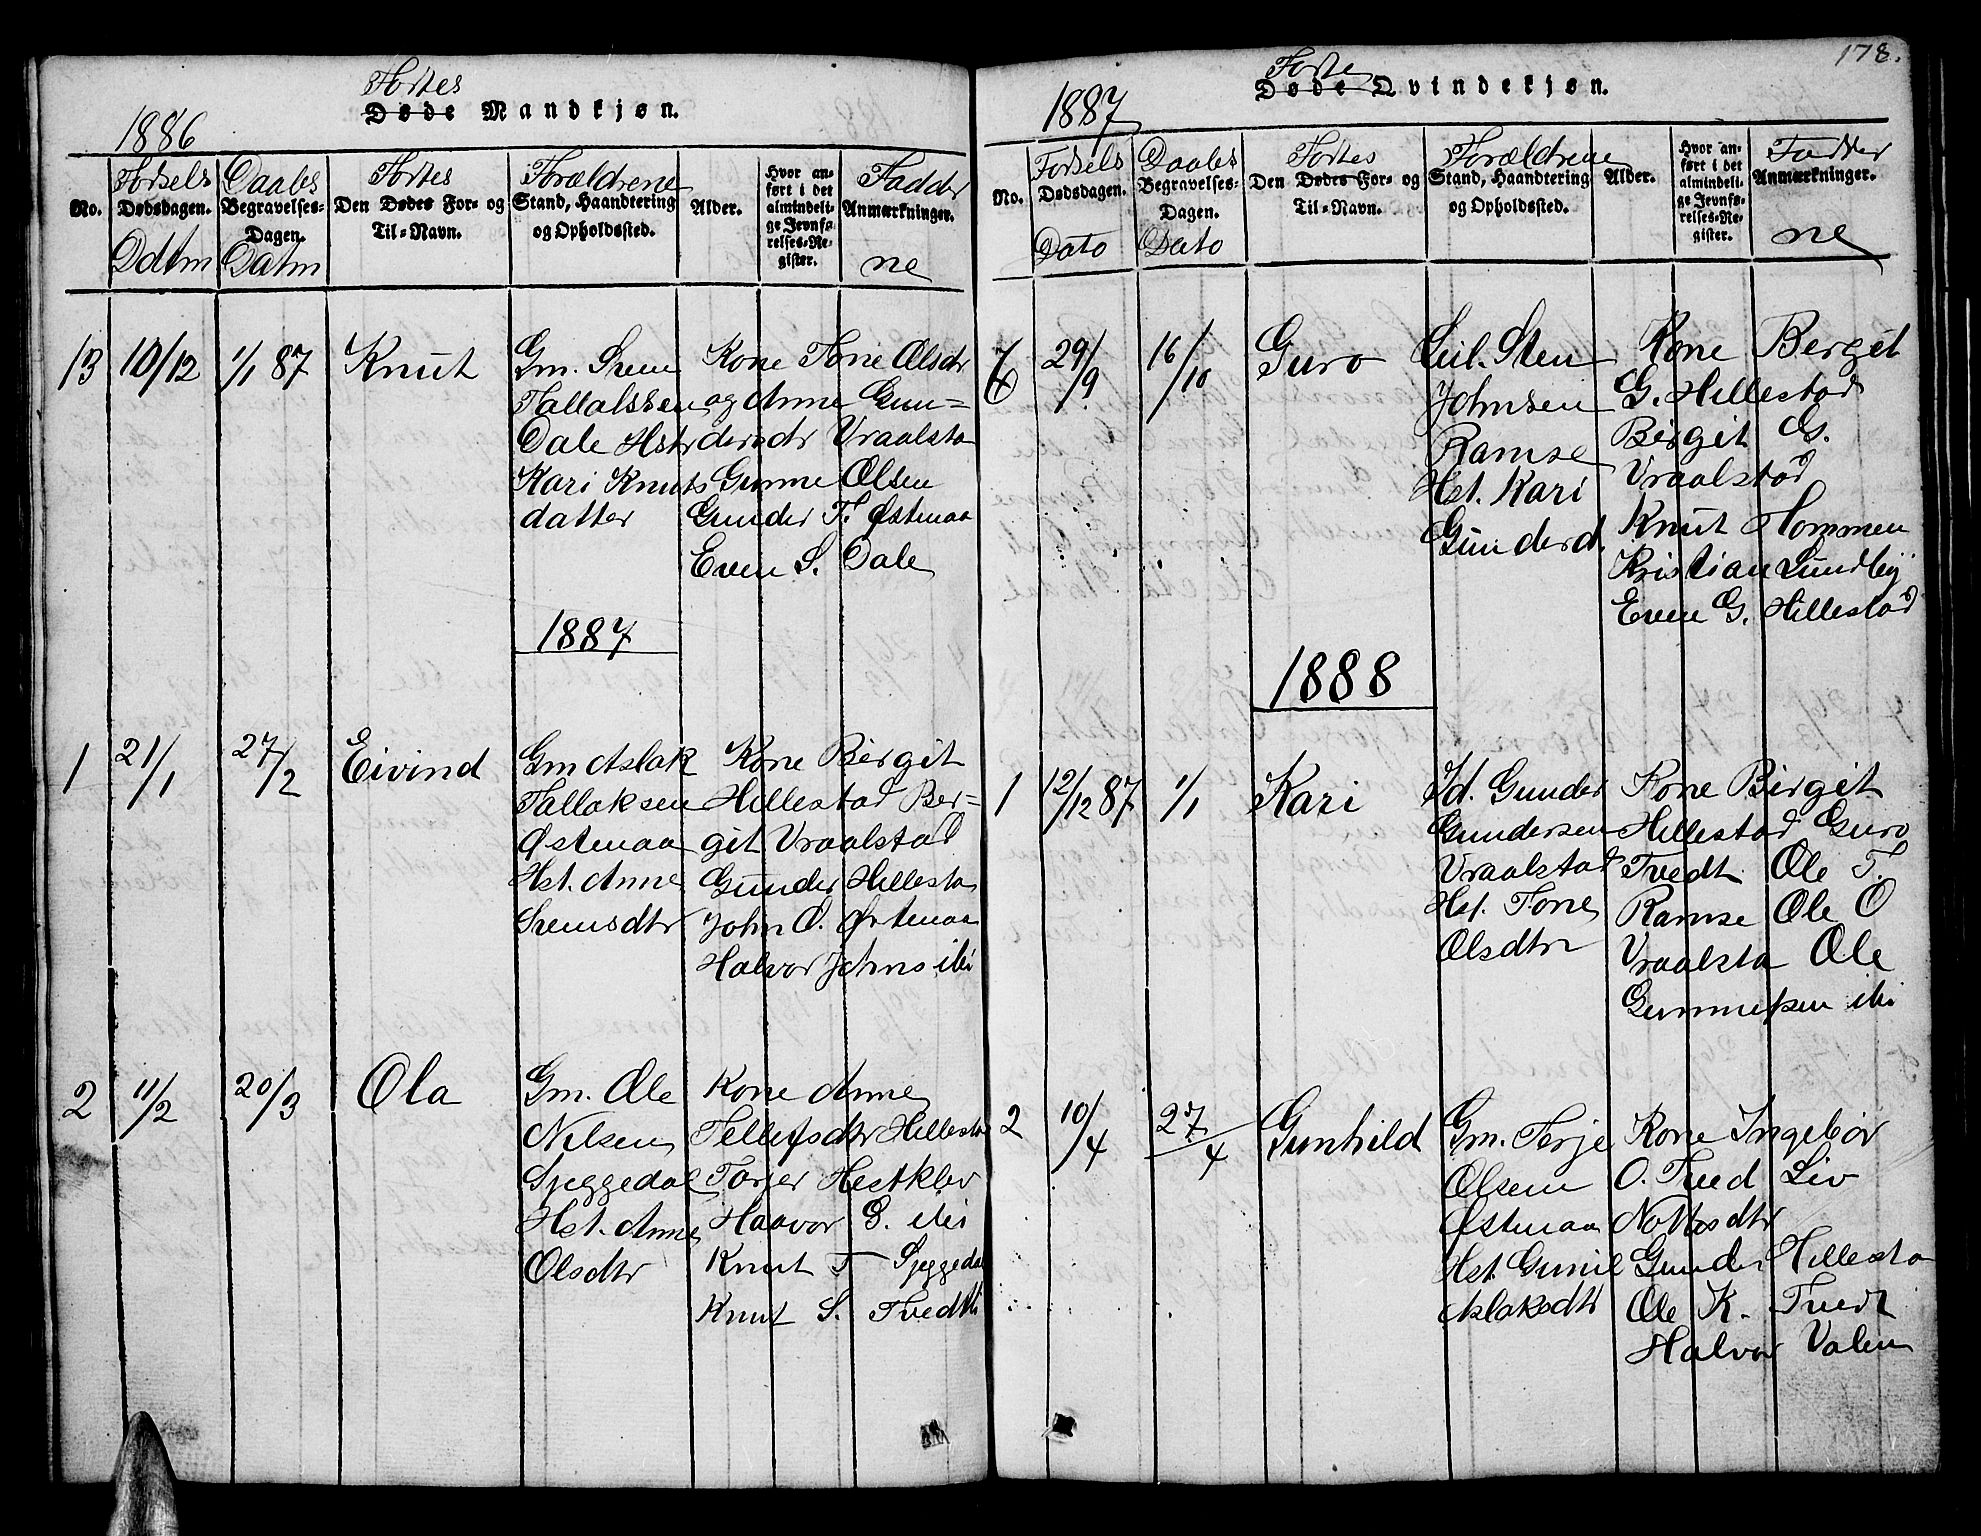 178.
Fødtes
Døde Mandkjøn.
1886
No.
Fødsels
Dødsdagen.
Ddtm
Daabs
Begravelses-
Dagen.
Datm
Fødtes
Den Dødes For- og
Til-Navn.
Forældrene
Stand, Haandtering
og Opholdssted.
Alder.
Hvor an-
ført i det
almindeli-
ge Jevnfø-
relses-Re-
gister.
Fadder
Anmærkninger.
ne
13 10/12 1/1 87 Knut
Gm. Svein
Tallaksen
Dale Hstr
Kari Knuts
datter
Kone Tone Olsdr
og Anne Gun=
dersdr Vraalsta
Gunne Olsen
Gunder T. Østenaa
Even S. Dale
1887
1 21/1 27/2 Eivind
Gm Aslak
Tallaksen
Østenaa
Hst. Anne
Svensdtr
Kone Birgit
Hillestad Ber=
git Vraalstad
Gunder Hillesta
John O. Østenaa
Halvor Johns ibi
2 11/2 20/3 Ola
Gm. Ole
Nilsen
Sjeggedal
Hst. Anne
Olsdtr
Kone Anne
Tellefsdtr Hillesta
Torjer Hestklev
Haavor G. ibi
Knut T Sjeggedal
Knut S. Tvedt
Fødte
Døde Qvindekjøn.
1887
No.
Fødsels
Dødsdagen.
Dato
Daabs
Begravelses-
Dagen.
Dato
Fødtes
Den Dødes For- og
Til-Navn.
Forældrene
Stand, Haandtering
og Opholdssted.
Alder.
Hvor an-
ført i det
almindeli-
ge Jevnfø-
relses-Re-
gister.
Fadder
Anmærkninger.
ne
29/9 16/10 Guro
Leil. Sten
Johnsen
Ramse
Hst. Kari
Gunderd.
Kone Bergit
G. Hillestad
Birgit G.
Vraalstad
Knut Hommen
Kristian Lundby
Even G. Hillestad
1888
1 12/12 87 1/1 Kari
Id. Gunder
Gundersen
Vraalstad
Hst. Tone
Olsdtr
Kone Birgit
Hillestad Guro
Tvedt Ole T.
Ramse Ole O
Vraalsta Ole
Gunnulsen ibi
2 10/4 27/4 Gunhild
Gm. Terje
Olsen
Østenaa
Hst. Gunil
Aslaksdtr
Kone Ingebor
O. Tved Liv
Nottosdtr
Gunder Hillesta
Ole K. Tvedt
Halvor Valen